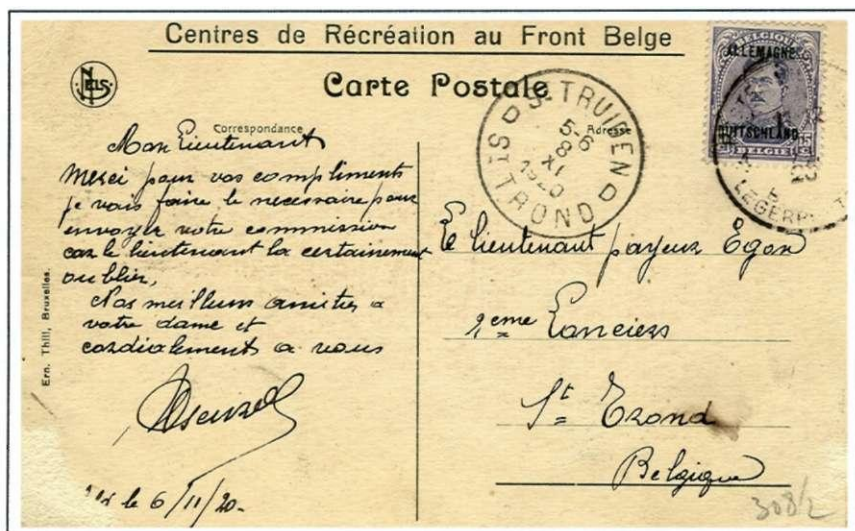 Centres de Récréation au Front Belge
NELS
Carte Postale
Correspondance
Adresse
Mon Lieutenant
Merci pour vos compliments
je vais faire le necessaire pour
envoyer votre commission
car le lieutenant la certainement
oublier,
Nos meilleurs amitiés a
votre dame et
cordialement a vous
le 6/11/20-
Ern. Thill, Bruxelles.
ST TRUIDEN
5-6
8
XI
1920
ST TROND
BELGIQUE
ALLEMAGNE
DUITSCHLAND
15 C
BELGIE
LEGERP
Le lieutenant payeur Egon
2eme Lanciers
St Trond
Belgique
308/2